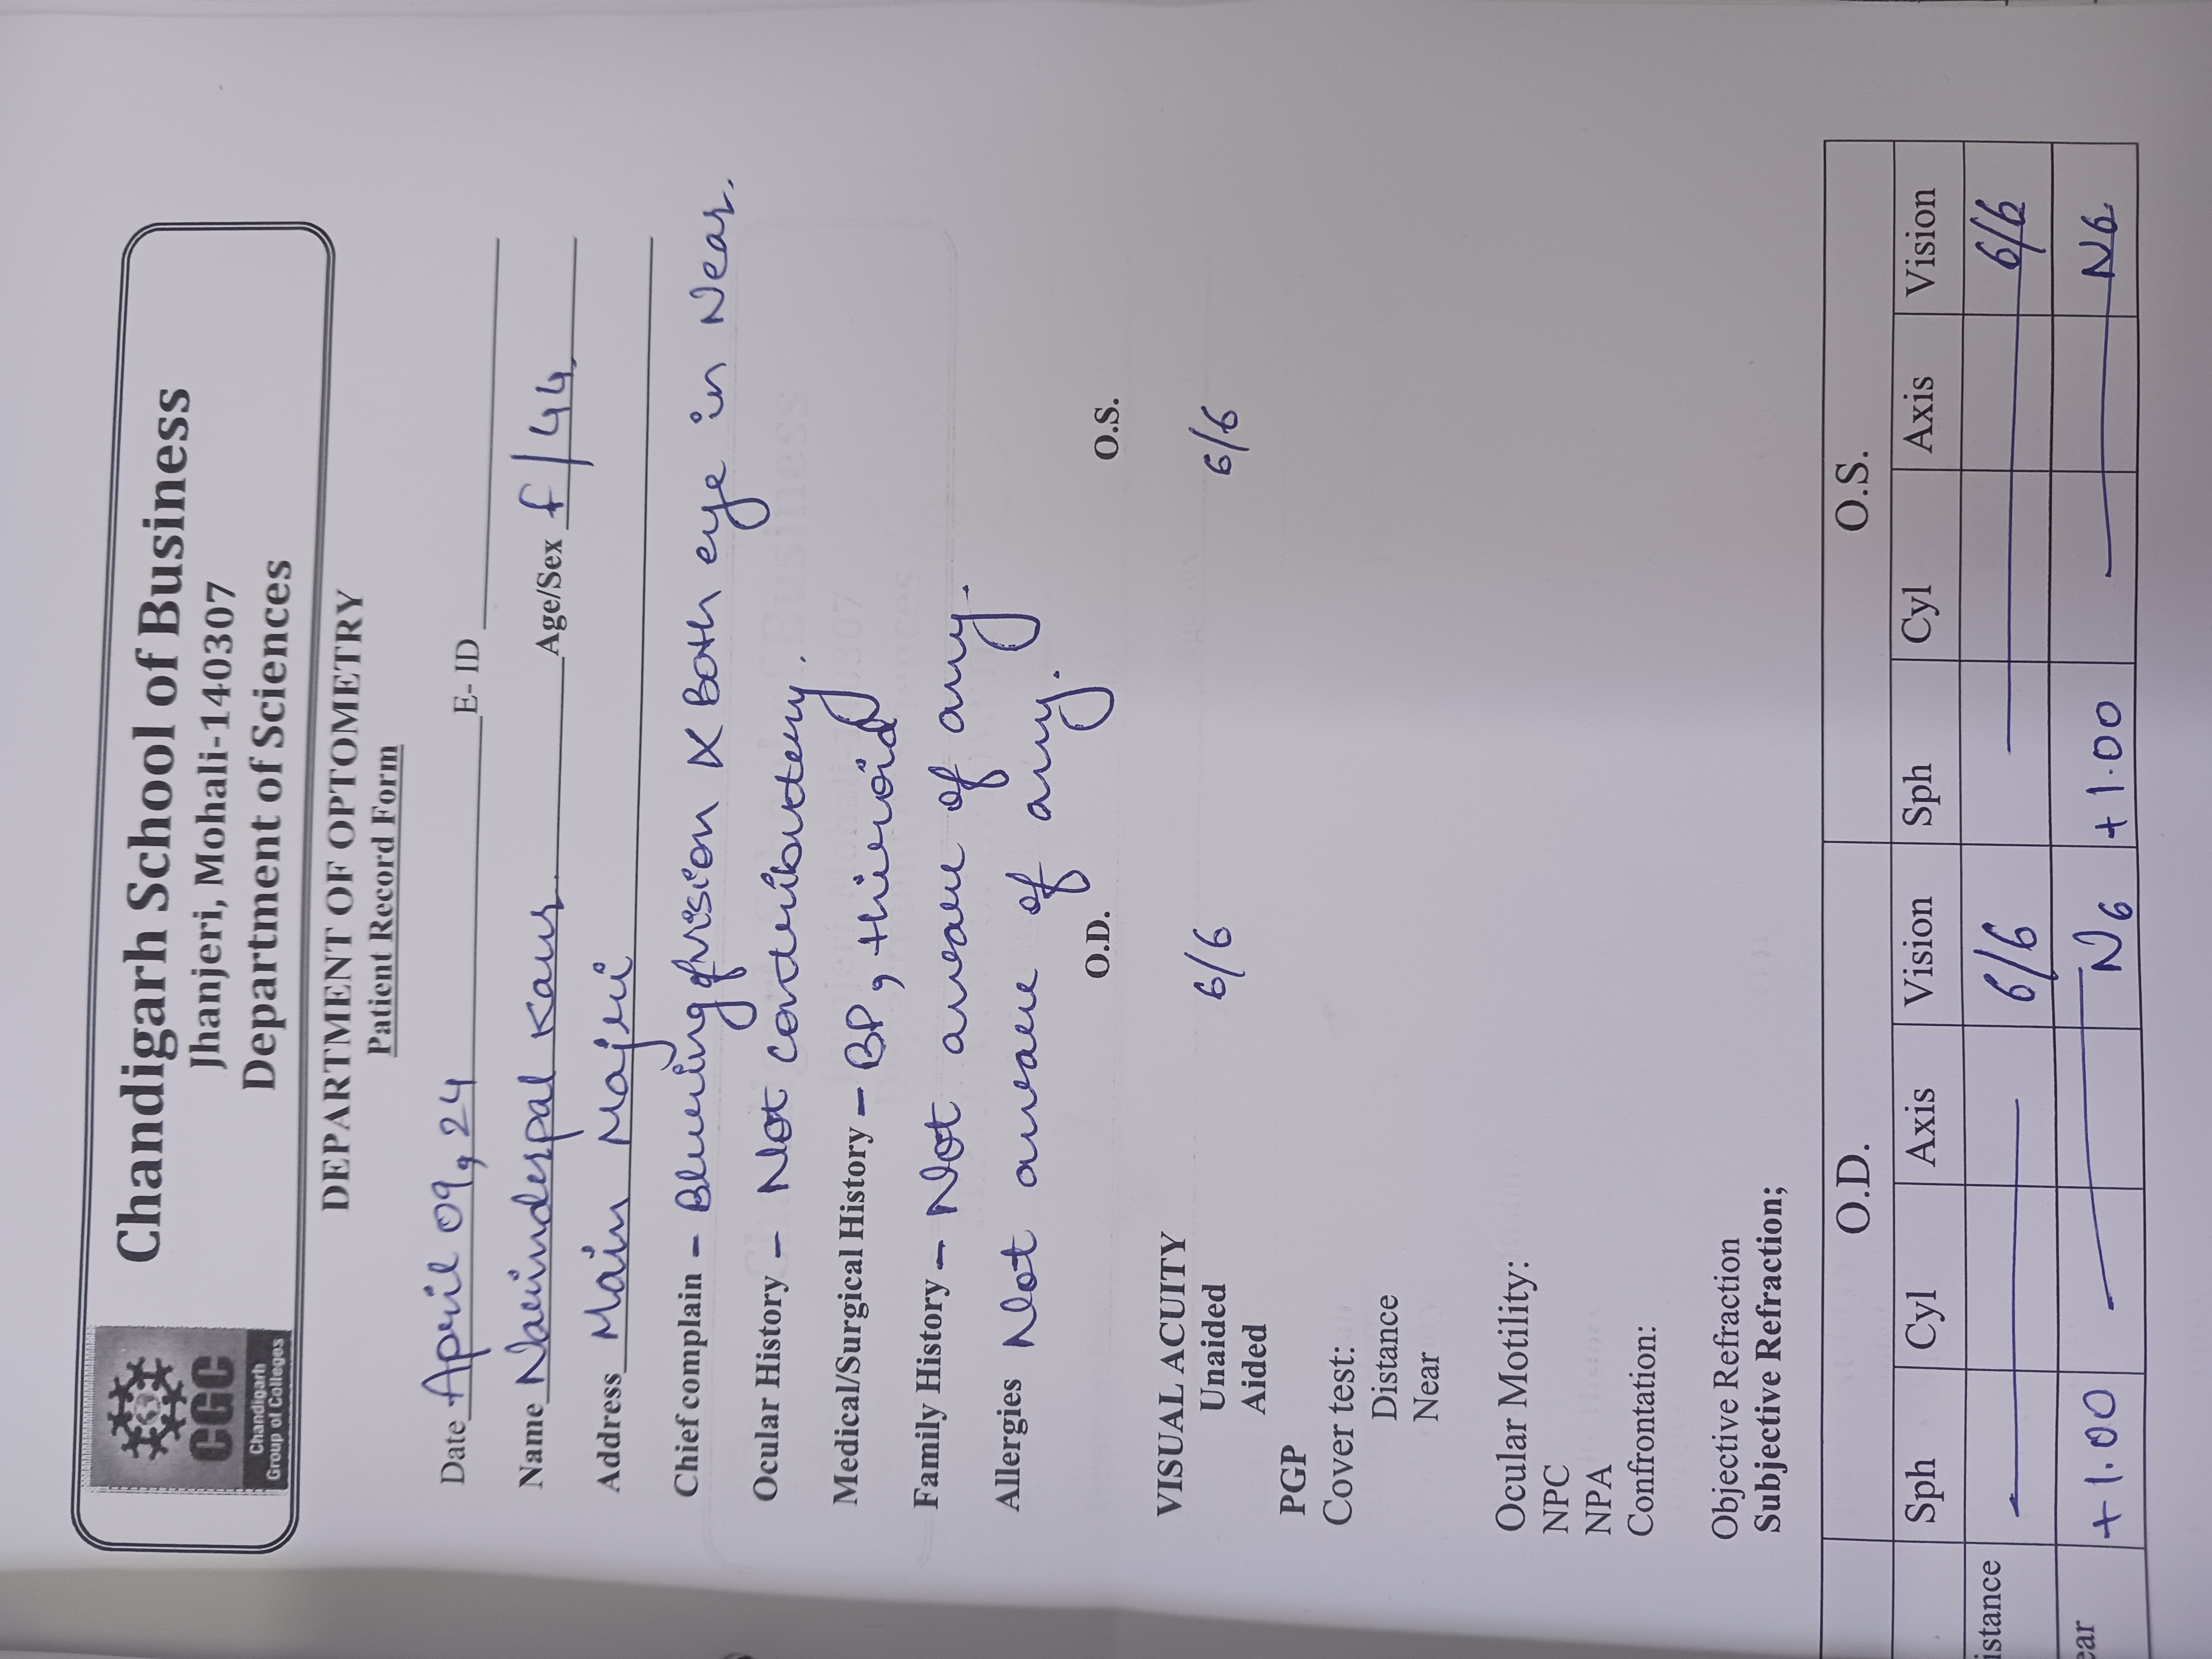 CGC
Chandigarh
Group of Colleges
Chandigarh School of Business
Jhanjeri, Mohali-140307
Department of Sciences
DEPARTMENT OF OPTOMETRY
Patient Record Form
Date April 09, 24 E- ID
Name Navinderpal Kaur Age/Sex f/44
Address Main Majri
Chief complain - Blurring of vision Both eye in Near.
Ocular History - Not contributory.
Medical/Surgical History - BP, thiroid
Family History - Not aware of any.
Allergies Not aware of any.
O.D. O.S.
VISUAL ACUITY
Unaided 6/6 6/6
Aided
PGP
Cover test:
Distance
Near
Ocular Motility:
NPC
NPA
Confrontation:
Objective Refraction
Subjective Refraction;
O.D. O.S.
Sph Cyl Axis Vision Sph Cyl Axis Vision
istance — 6/6 — 6/6
ear +1.00 — N6 +1.00 — N6